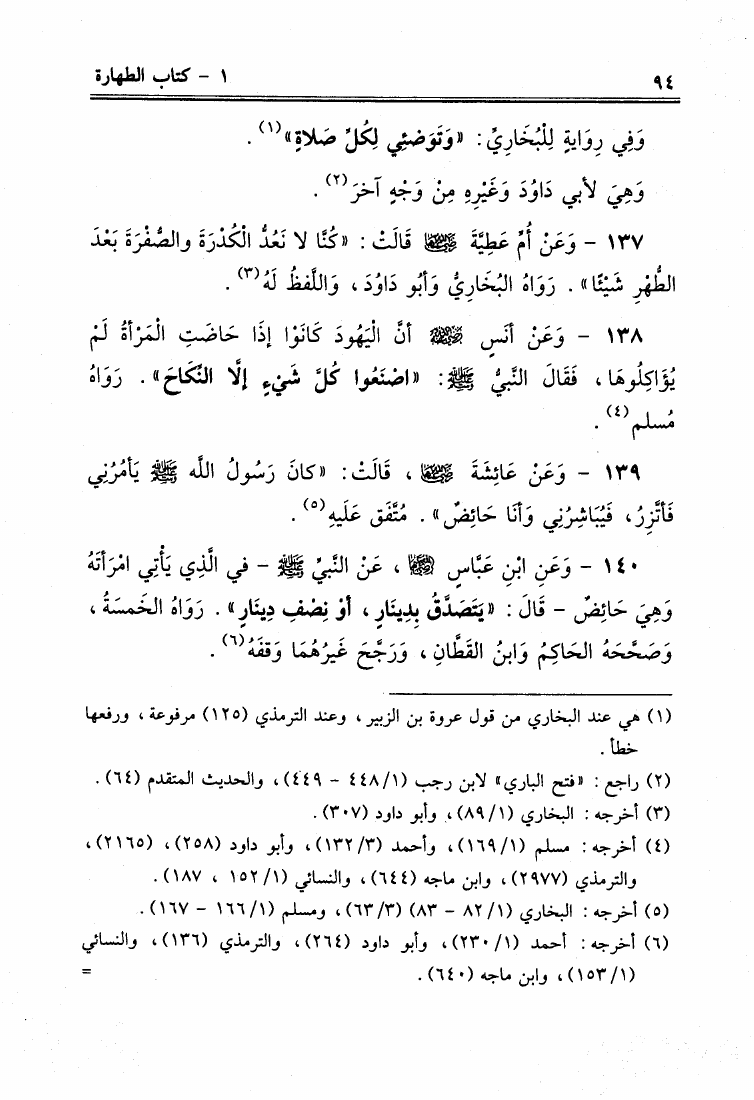 ٩٤
١ - كتاب الطهارة
وَفِي رِوَايَةٍ لِلْبُخَارِيِّ: «وَتَوَضَّئِي لِكُلِّ صَلاةٍ»(١).
وَهِيَ لأبي دَاوُدَ وَغَيْرِهِ مِنْ وَجْهٍ آخَرَ(٢).
١٣٧ - وَعَنْ أُمِّ عَطِيَّةَ رضي الله عنها قَالَتْ: «كُنَّا لا نَعُدُّ الْكُدْرَةَ والصُّفْرَةَ بَعْدَ
الطُّهْرِ شَيْئًا». رَوَاهُ البُخَارِيُّ وَأَبُو دَاوُدَ، وَاللَّفظُ لَهُ(٣).
١٣٨ - وَعَنْ أَنَسٍ رضي الله عنه أَنَّ الْيَهُودَ كَانَوْا إِذَا حَاضَتِ الْمَرْأَةُ لَمْ
يُؤَاكِلُوهَا، فَقَالَ النَّبِيُّ ﷺ: «اصْنَعُوا كُلَّ شَيْءٍ إِلَّا النِّكَاحَ». رَوَاهُ
مُسلم(٤).
١٣٩ - وَعَنْ عَائِشَةَ رضي الله عنها، قَالَتْ: «كانَ رَسُولُ اللَّه ﷺ يَأمُرُنِي
فَأَتَّزِرُ، فَيُبَاشِرُنِي وَأَنَا حَائِضٌ». مُتَّفَق عَلَيهِ(٥).
١٤٠ - وَعَنِ ابْنِ عَبَّاسٍ رضي الله عنهما، عَنِ النَّبِيِّ ﷺ - في الَّذِي يَأْتِي امْرَأَتَهُ
وَهِيَ حَائِضٌ - قَالَ: «يَتَصَدَّقُ بِدِينَارٍ، أَوْ نِصْفِ دِينَارٍ». رَوَاهُ الخَمسَةُ،
وَصَحَّحَهُ الحَاكِمُ وَابنُ القَطَّانِ، وَرَجَّحَ غَيرُهُمَا وَقفَهُ(٦).
(١) هي عند البخاري من قول عروة بن الزبير، وعند الترمذي (١٢٥) مرفوعة، ورفعها
خطأ.
(٢) راجع: «فتح الباري» لابن رجب (٤٤٨/١ - ٤٤٩)، والحديث المتقدم (٦٤).
(٣) أخرجه: البخاري (٨٩/١)، وأبو داود (٣٠٧).
(٤) أخرجه: مسلم (١٦٩/١)، وأحمد (١٣٢/٣)، وأبو داود (٢٥٨)، (٢١٦٥)،
والترمذي (٢٩٧٧)، وابن ماجه (٦٤٤)، والنسائي (١٥٢/١، ١٨٧).
(٥) أخرجه: البخاري (٨٢/١ - ٨٣) (٦٣/٣)، ومسلم (١٦٦/١ - ١٦٧).
(٦) أخرجه: أحمد (٢٣٠/١)، وأبو داود (٢٦٤)، والترمذي (١٣٦)، والنسائي
(١٥٣/١)، وابن ماجه (٦٤٠). =